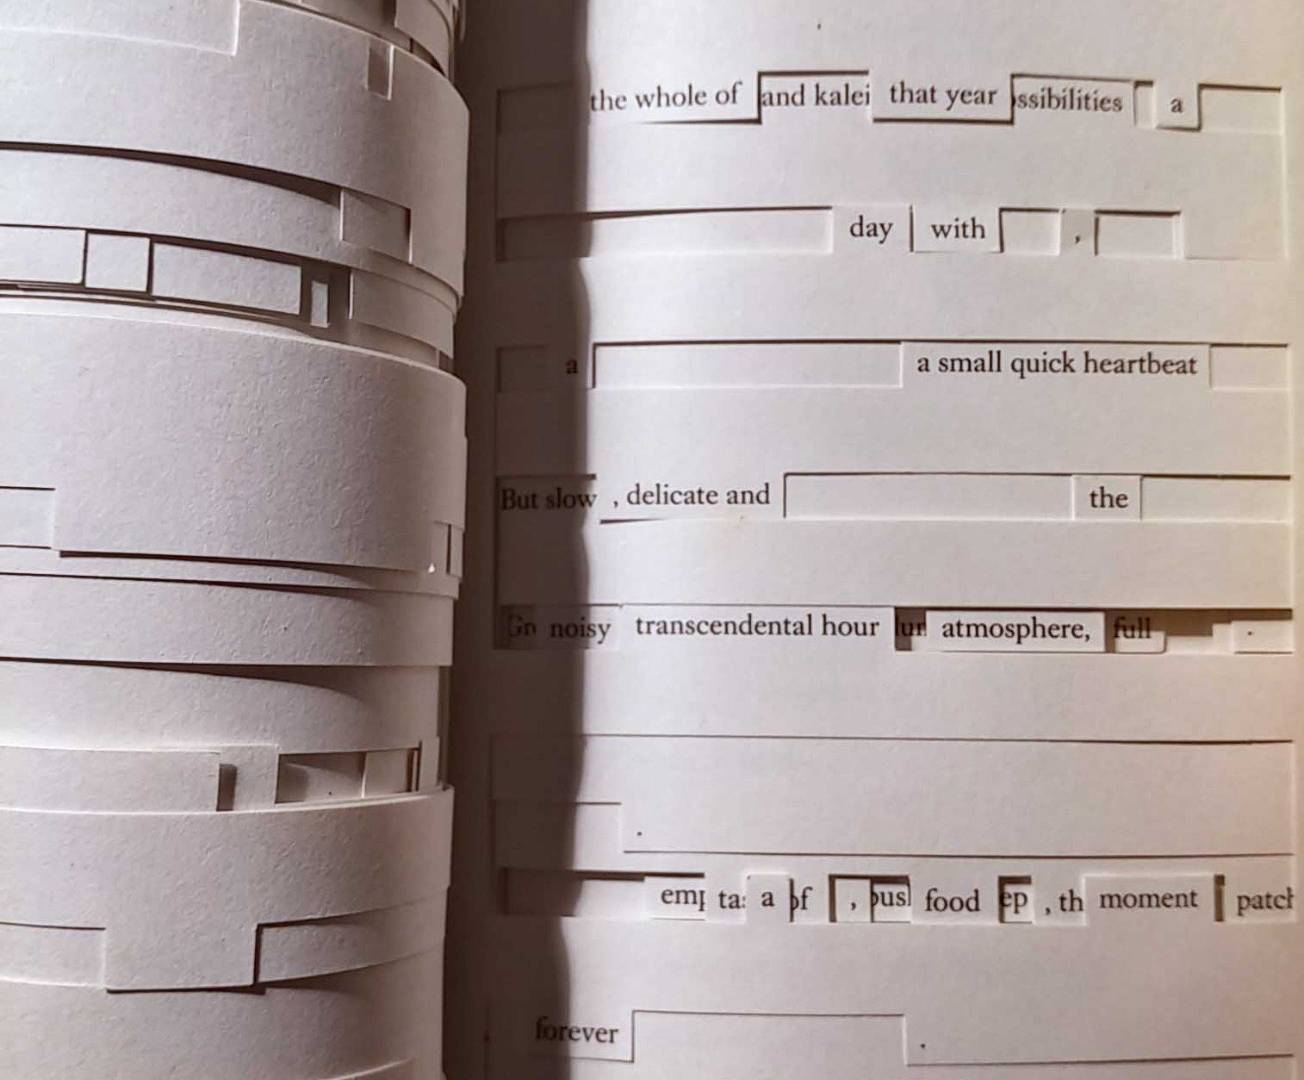 the whole of and kalei that year ssibilities a
day with ,
a a small quick heartbeat
But slow , delicate and the
noisy transcendental hour lur atmosphere, full .
.
emp ta a of , ous food ep , th moment patch
forever .